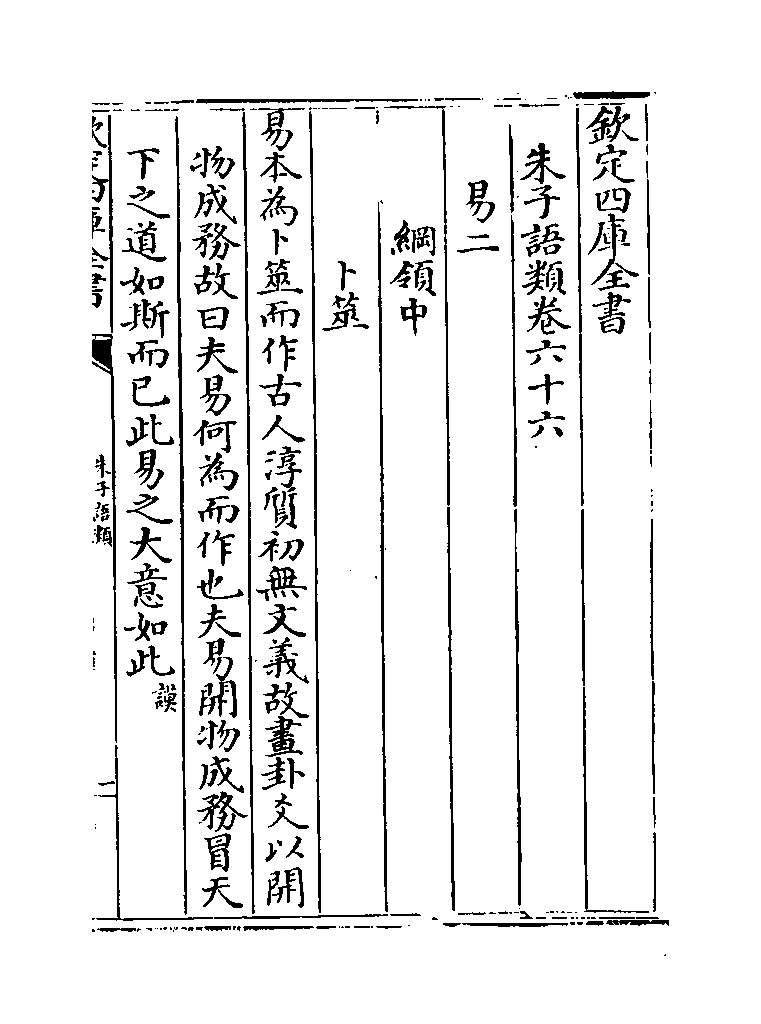 欽定四庫全書
朱子語類卷六十六
易二
綱領中
卜筮
易本為卜筮而作古人淳質初無文義故畫卦爻以開
物成務故曰夫易何為而作也夫易開物成務冒天
下之道如斯而已此易之大意如此謨
欽定四庫全書
朱子語類